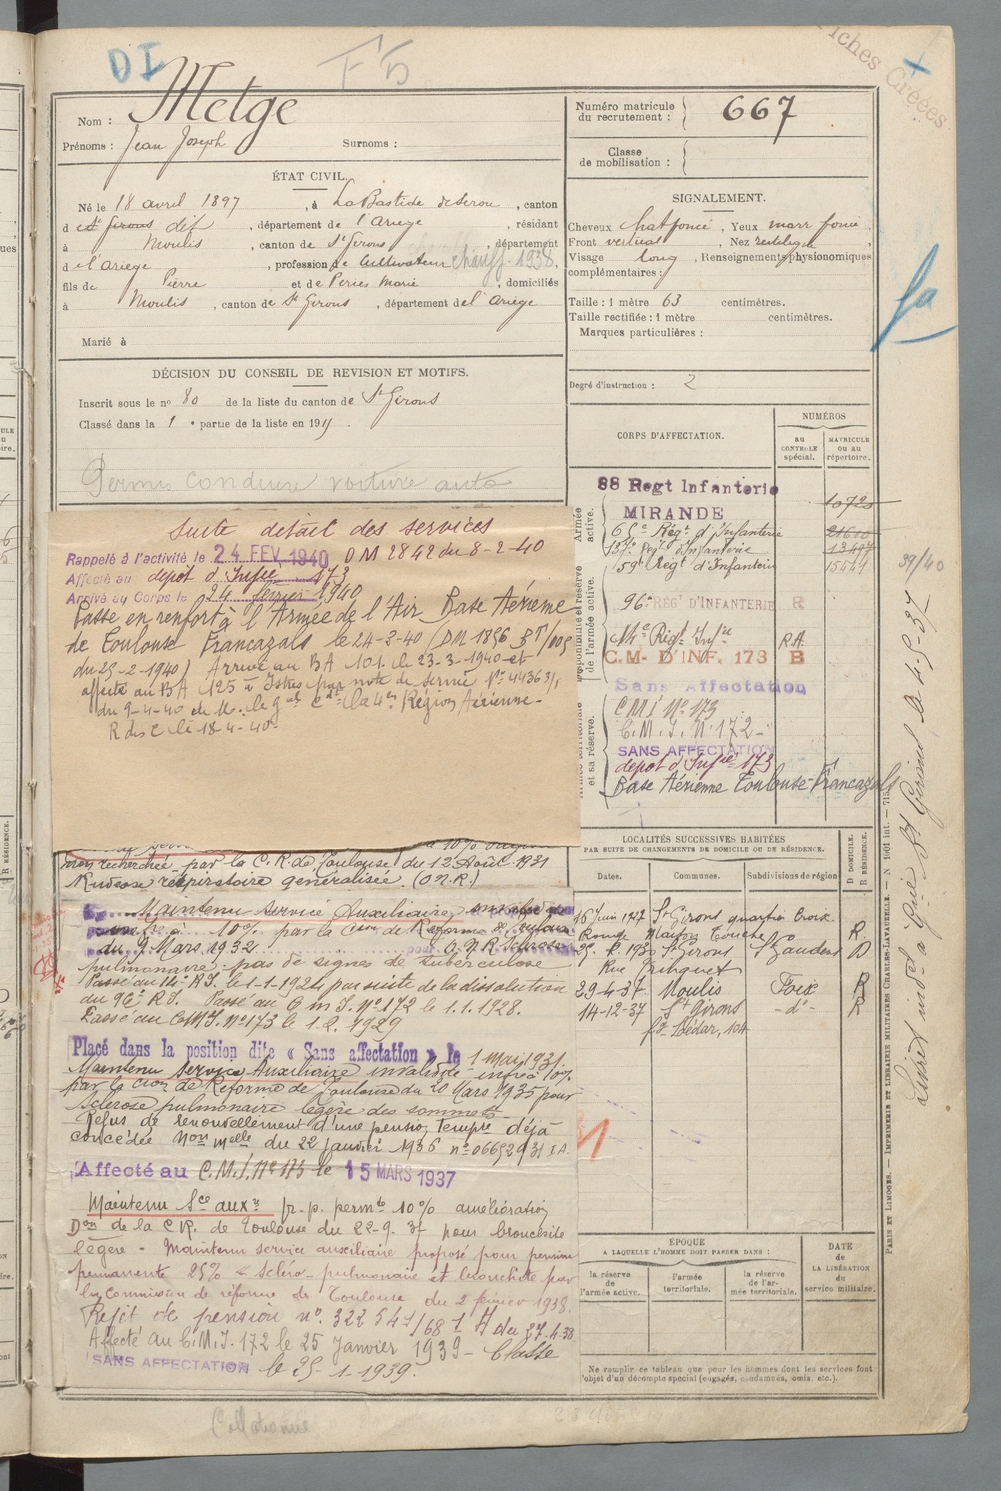 DI
F 5
Fiches Créées
Nom : Metge
Prénoms : Jean Joseph Surnoms :
Numéro matricule du recrutement : 667
Classe de mobilisation :
ÉTAT CIVIL.
Né le 18 avril 1897, à La Bastide de Serou, canton
d St Girons dit, département de l'Ariege, résidant
à Moulis, canton de St Girons, département
d e l'Ariege, profession de Cultivateur chauff. 1938,
fils de Pierre et de Peries Marie, domiciliés
à Moulis, canton de St Girons, département de l'Ariège
Marié à
SIGNALEMENT.
Cheveux chat foncé, Yeux marr foncé,
Front vertical, Nez rectiligne
Visage long, Renseignements physionomiques
complémentaires :
Taille : 1 mètre 63 centimètres.
Taille rectifiée : 1 mètre centimètres.
Marques particulières :
Degré d'instruction : 2
DÉCISION DU CONSEIL DE REVISION ET MOTIFS.
Inscrit sous le no 80 de la liste du canton de St Girons
Classé dans la 1 e partie de la liste en 191
Permis conduire voiture auto
CORPS D'AFFECTATION.
NUMÉROS
au CONTROLE spécial.
MATRICULE OU AU répertoire.
Armée active.
88 Regt Infanterie 10720
MIRANDE
65e Régt d'Infanterie
137e Régt d'Infanterie
59e Régt d'Infanterie
39/40
Disponibilité et réserve de l'armée active.
96e REGt D'INFANTERIE R
14e Régt Infie R.A.
C.M. D'INF. 173 B
Sans Affectation
Armée territoriale et sa réserve.
CMI No 173
C.M.I. No 172
SANS AFFECTATION
depot d'Infie 173
Base Aérienne Toulouse-Francazals
Suite détail des services
Rappelé à l'activité le 24 FEV. 1940 DM 2842 du 8-2-40
Affecté au depot d'Infie 173
Arrivé au Corps le 24 février 1940
Passé en renfort à l'Armée de l'Air Base Aérienne
de Toulouse Francazals le 24-3-40 (DM 1896
du 25-2-1940) Arrivé au BA 101 le 23-3-1940 et
affecté au BA 125 à Istres par note de service No 4436
du 9-4-40 de M. le gal Cdt la 4e Région Aérienne.
R des C le 18-4-40
recherchée par la C.R. de Toulouse du 12 Août 1931
Rudesse respiratoire généralisée. (O.N.R.)
Maintenu service Auxiliaire
10% par la Cion de Réforme de Toulouse
du 9 Mars 1932 O.N.R. Sclérose
pulmonaire ; pas de signes de tuberculose
Passé au 14e R.I. le 1-1-1924 par suite de la dissolution
du 96e R.I. Passé au C m I. No 172 le 1.1.1928.
Passé au C.M.I. No 173 le 1.2.1929
Placé dans la position dite « Sans affectation » le 1 mai 1931.
Maintenu Service Auxiliaire invalidité infre à 10%
par la Cion de Réforme de Toulouse du 20 Mars 1935 pour
Sclérose pulmonaire légère des sommets
Refus de renouvellement d'une pension tempre déjà
concédée Non melle du 22 Janvier 1936
Affecté au C.M.I. No 173 le 15 MARS 1937
Maintenu Sce auxre p. p. permte 10% amélioration
Don de la C R. de Toulouse du 22-9.37 pour bronchite
légère - Maintenu service auxiliaire proposé pour pension
permanente 25% scléro-pulmonaire et bronchite par
la Commission de réforme de Toulouse du 2 février 1938.
Rejet de pension no. 322541/68 du 27.4.38
Affecté au C.M.I. 172 le 25 Janvier 1939 - Classé
SANS AFFECTATION le 25-1-1939.
LOCALITÉS SUCCESSIVES HABITÉES
PAR SUITE DE CHANGEMENTS DE DOMICILE OU DE RÉSIDENCE.
Dates. Communes. Subdivisions de région
D DOMICILE. R RÉSIDENCE.
16 Juin 1927 St Girons quartier Croix
Rouge Maison Touche R
1930 St Girons St Gaudens D
Rue Trinquet
29-4-37 Moulis Foix R
14-12-37 St Girons -d°- R
ÉPOQUE
A LAQUELLE L'HOMME DOIT PASSER DANS :
la réserve de l'armée active.
l'armée territoriale.
la réserve de l'armée territoriale.
DATE de LA LIBÉRATION du service militaire.
Ne remplir ce tableau que pour les hommes dont les services font
l'objet d'un décompte spécial (engagés, condamnés, omis, etc.).
PARIS ET LIMOGES. — IMPRIMERIE ET LIBRAIRIE MILITAIRES CHARLES-LAVAUZELLE. — N° 1001 int. — 715.
Collationné